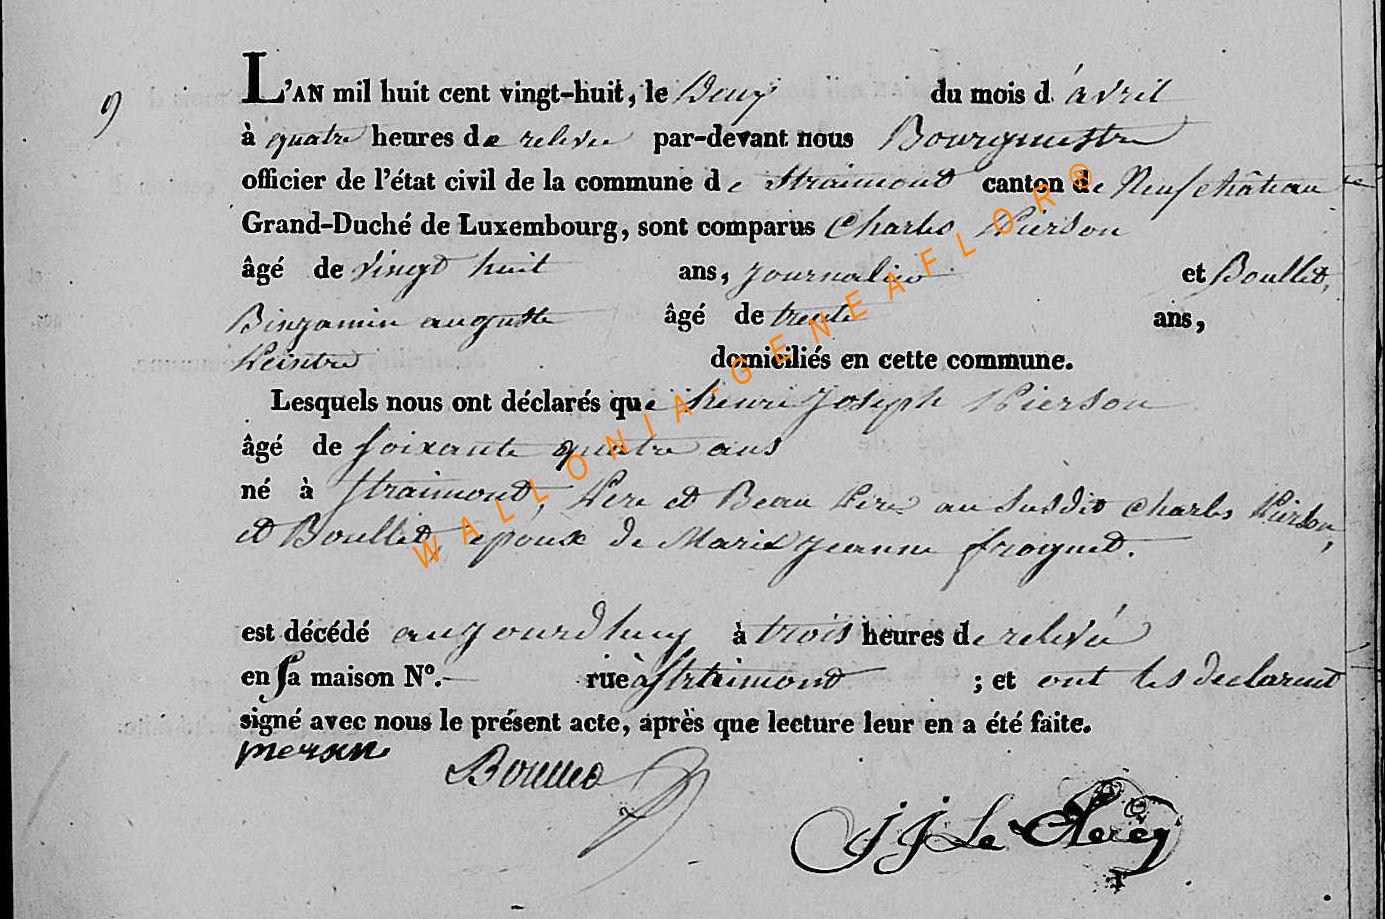 9
L'AN mil huit cent vingt-huit, le Deux du mois d'avril
à quatre heures de relevée par-devant nous Bourgmestre
officier de l'état civil de la commune de Straimont canton de Neufchâteau
Grand-Duché de Luxembourg, sont comparus Charles Pierson
âgé de vingt huit ans, journalier et Boullet,
Binjamin auguste âgé de trente ans,
Peintre domiciliés en cette commune.
Lesquels nous ont déclarés que henri Joseph Pierson
âgé de soixante quatre ans
né à Straimont, Pere et Beau Pere au susdit Charles Pierson,
et Boullet, epoux de Marie jeanne froignet.
est décédé aujourdhuy à trois heures de relevée
en sa maison N°. — rue à Straimont ; et ont les declarent
signé avec nous le présent acte, après que lecture leur en a été faite.
pierson
Boullet
J J Le Clercq
WALLONIA-GENEAFLOR®